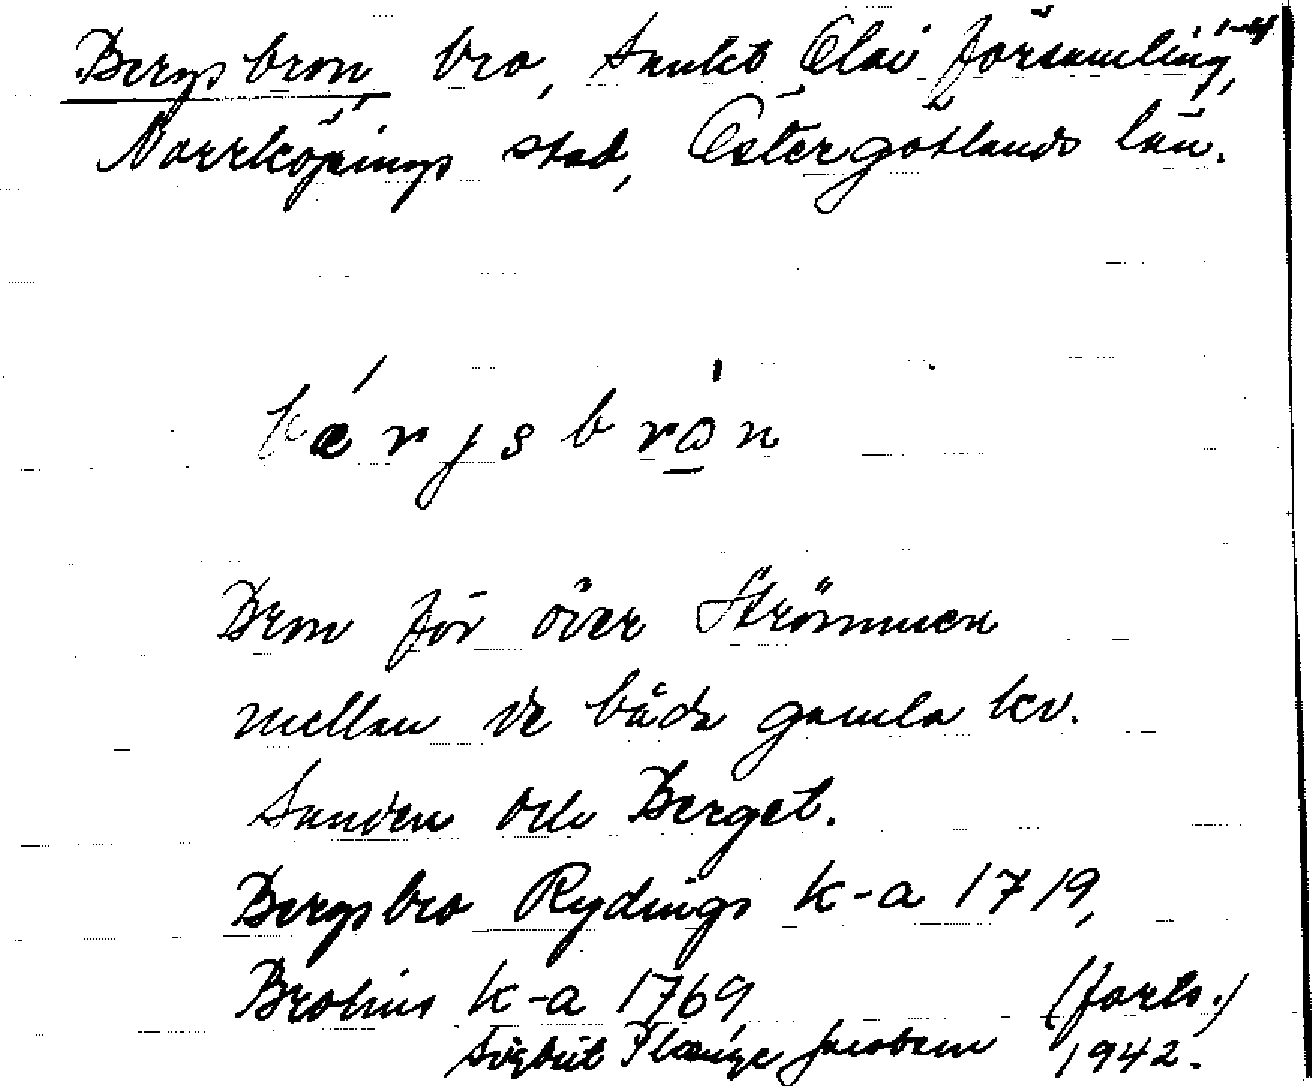 Bergsbron, bro, Sankt Olai församling,
Norrköpings stad, Östergötlands län.
bǽrjsbrȯn
Bron för över Strömmen
mellan de båda gamla kv.
Sanden och Berget.
Bergsbro Rydings k-a 1719,
Brolins k-a 1769 (forts.)
Sigbrit Plænge Jacobson 1942.